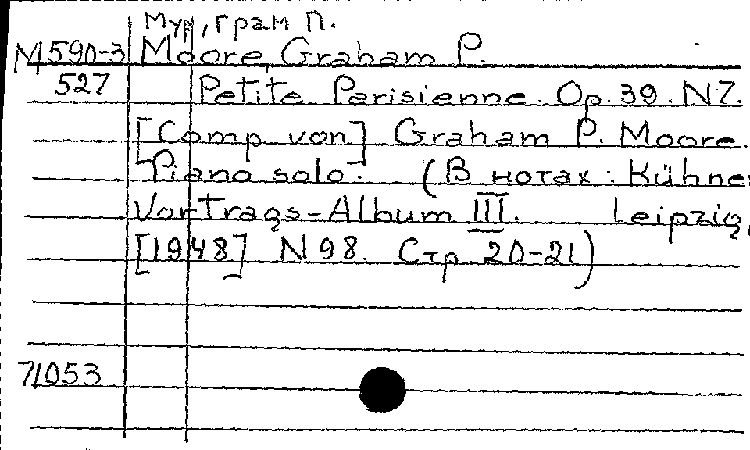 Мур, Грам П.
М590-3 Moore, Graham P.
527 Petite Parisienne. Op. 39. N7.
[Comp. von] Graham P. Moore.
Piano solo. (В нотах: Kühner
Vortrags-Album III. Leipzig,
[1948] N 98. Стр. 20-21)
71053